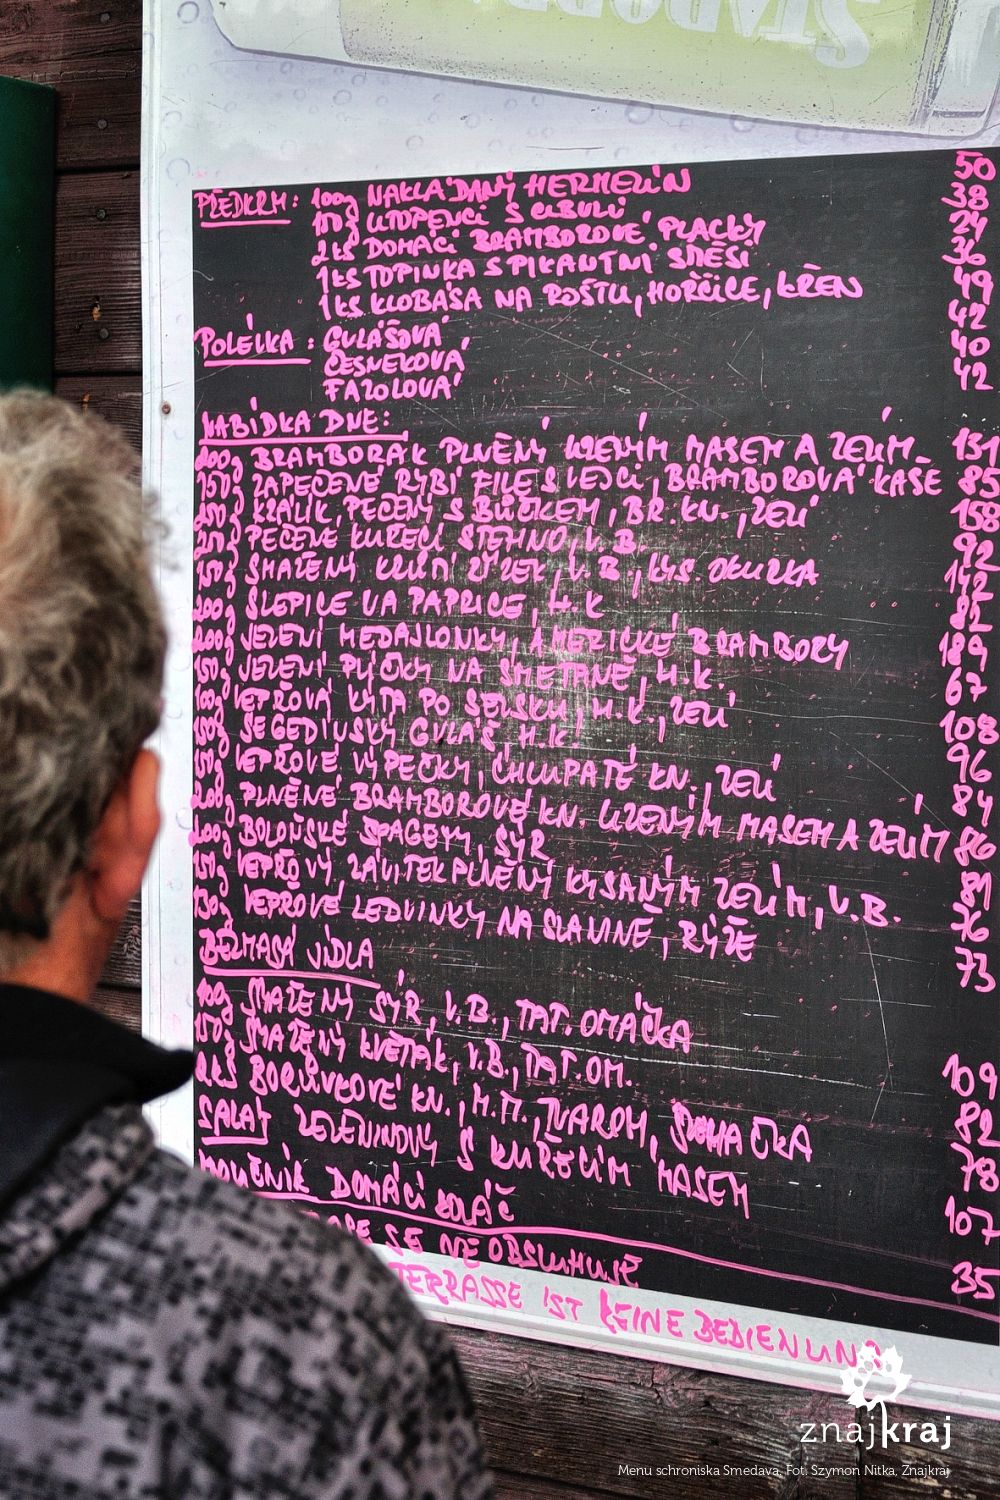 STAROPR
PŘEDKRM: 100g NAKLÁDANÝ HERMELÍN 50
100g UTOPENCI S CIBULÍ 38
2ks DOMÁCÍ BRAMBOROVÉ PLACKY 24
1ks TOPINKA S PIKANTNÍ SMĚSÍ 36
1ks KLOBÁSA NA ROŠTU, HOŘČICE, KŘEN 49
POLÉVKA: GULÁŠOVÁ 42
ČESNEKOVÁ 40
FAZOLOVÁ 42
NABÍDKA DNE:
200g BRAMBORÁK PLNĚNÝ UZENÝM MASEM A ZELÍM 131
150g ZAPEČENÉ RYBÍ FILÉ S VEJCI, BRAMBOROVÁ KAŠE 85
250g KRÁLÍK PEČENÝ S BŮČKEM, BR. KN., ZELÍ 158
250g PEČENÉ KUŘECÍ STEHNO, V.B. 92
150g SMAŽENÝ KRŮTÍ ŘÍZEK, V.B., KYS. OKURKA 142
200g SLEPICE NA PAPRICE, H.K. 82
200g JELENÍ MEDAJLONKY, AMERICKÉ BRAMBORY 189
150g JELENÍ PLÍČKY NA SMETANĚ, H.K. 67
100g VEPŘOVÁ KÝTA PO SELSKU, H.K., ZELÍ 108
150g SEGEDÍNSKÝ GULÁŠ, H.K. 96
150g VEPŘOVÉ VÝPEČKY, CHLUPATÉ KN., ZELÍ 84
200g PLNĚNÉ BRAMBOROVÉ KN. UZENÝM MASEM A ZELÍM 86
200g BOLOŇSKÉ ŠPAGETY, SÝR 81
150g VEPŘOVÝ ZÁVITEK PLNĚNÝ KYSANÝM ZELÍM, V.B. 76
130g VEPŘOVÉ LEDVINKY NA SLANINĚ, RÝŽE 73
BEZMASÁ JÍDLA
100g SMAŽENÝ SÝR, V.B., TAT. OMÁČKA 109
150g SMAŽENÝ KVĚTÁK, V.B., TAT. OM. 82
2ks BORŮVKOVÉ KN., M.M., TVAROH, ŠLEHAČKA 78
SALÁT ZELENINOVÝ S KUŘECÍM MASEM 107
MOUČNÍK DOMÁCÍ KOLÁČ 35
SE NE OBSLUHUJE
TERRASSE IST KEINE BEDIENUNG
znajkraj
Menu schroniska Smedava, Fot. Szymon Nitka, Znajkraj